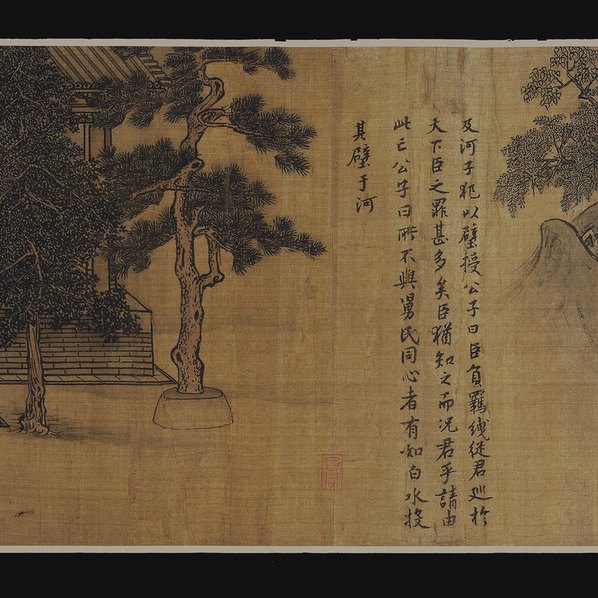 及河子犯以璧授公子曰臣負羈絏從君巡於
天下臣之罪甚多矣臣猶知之而況君乎請由
此亡公子曰所不與舅氏同心者有如白水投
其璧于河